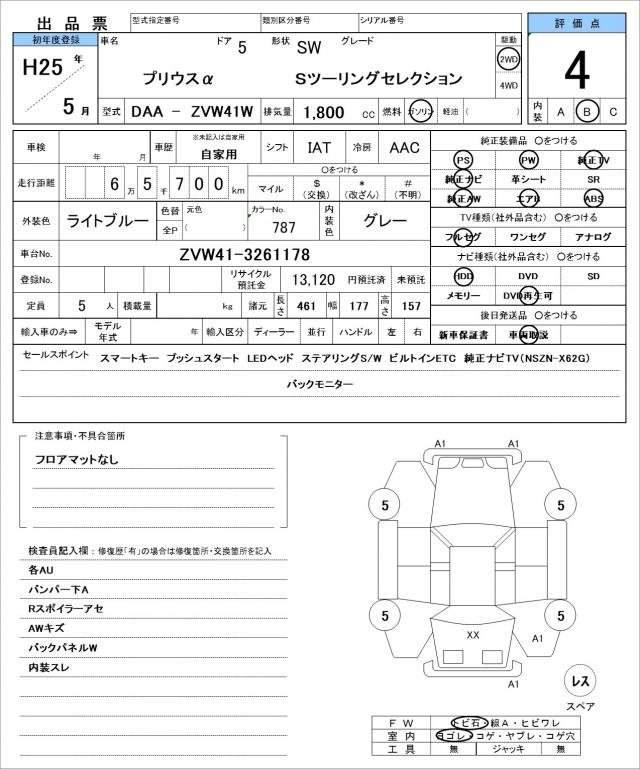 出品票 型式指定番号 類別区分番号 シリアル番号
初年度登録 車名 ドア 5 形状 SW グレード 駆動 評価点
H25 年 プリウスα Sツーリングセレクション 2WD 4
4WD
5 月 型式 DAA - ZVW41W 排気量 1,800 cc 燃料 ガソリン 軽油 ( ) 内装 A B C
車検 年 月 車歴 ※未記入は自家用 自家用 シフト IAT 冷房 AAC 純正装備品 〇をつける
PS PW 純正TV
走行距離 6 万 5 千 7 0 0 km 〇をつける
マイル $ (交換) * (改ざん) # (不明)
純正ナビ 革シート SR
純正AW エアB ABS
外装色 ライトブルー 色替 元色 全P ( ) カラーNo. 787 内装色 グレー
TV種類(社外品含む) 〇をつける
フルセグ ワンセグ アナログ
車台No. ZVW41-3261178 ナビ種類(社外品含む) 〇をつける
登録No. リサイクル預託金 13,120 円預託済 未預託 HDD DVD SD
定員 5 人 積載量 kg 諸元 長さ 461 幅 177 高さ 157 メモリー DVD再生可
後日発送品 〇をつける
輸入車のみ⇒ モデル年式 年 輸入区分 ディーラー 並行 ハンドル 左 右 新車保証書 車両取説
セールスポイント スマートキー プッシュスタート LEDヘッド ステアリングS/W ビルトインETC 純正ナビTV(NSZN-X62G)
バックモニター
注意事項・不具合箇所
フロアマットなし
検査員記入欄:修復歴「有」の場合は修復箇所・交換箇所を記入
各AU
バンパー下A
Rスポイラーアセ
AWキズ
バックパネルW
内装スレ
A1 A1
5 5
5 5
XX A1
A1
レス
スペア
FW トビ石・線A・ヒビワレ
室内 ヨゴレ・コゲ・ヤブレ・コゲ穴
工具 無 ジャッキ 無